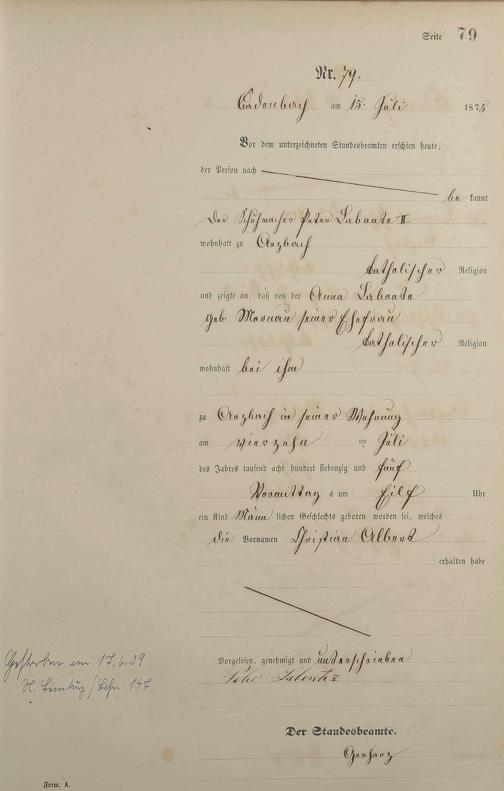 Seite 79
Nr. 79.
Cadenbach am 15 Juli 1875
Vor dem unterzeichneten Standesbeamten erschien heute,
der Person nach
be kannt
der Schuhmacher Peter Labonte II
wohnhaft zu Arzbach
katholischer Religion
und zeigte an, daß von der Anna Labonte
geb. seiner Ehefrau
katholischer Religion
wohnhaft bei ihm
zu Arzbach in seiner Wohnung
am vierzehn ten Juli
des Jahres tausend acht hundert siebenzig und fünf
Vormittag s um Eilf Uhr
ein Kind Männ lichen Geschlechts geboren worden sei, welches
die Vornamen Christian Albert
erhalten habe
Vorgelesen, genehmigt und unterschrieben
Peter Labonte II
Der Standesbeamte.
Gerharz
Gestorben am 17.6.39
St. Limburg/Lahn 147
Form. A.